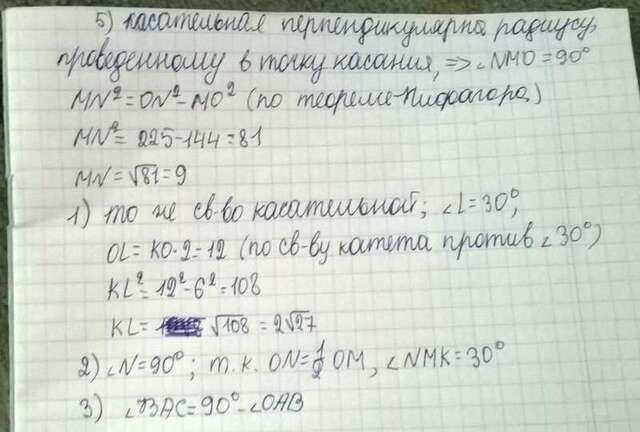 5) касательная перпендикулярна радиусу,
проведенному в точку касания, => ∠NMO = 90°
MN² = ON² - MO² (по теореме Пифагора)
MN² = 225 - 144 = 81
MN = √81 = 9
1) то же св-во касательной; ∠L = 30°,
OL = KO · 2 = 12 (по св-ву катета против ∠30°)
KL² = 12² - 6² = 108
KL = √108 = 2√27
2) ∠N = 90°; т.к. ON = 1/2 OM, ∠NMK = 30°
3) ∠BAC = 90° - ∠OAB